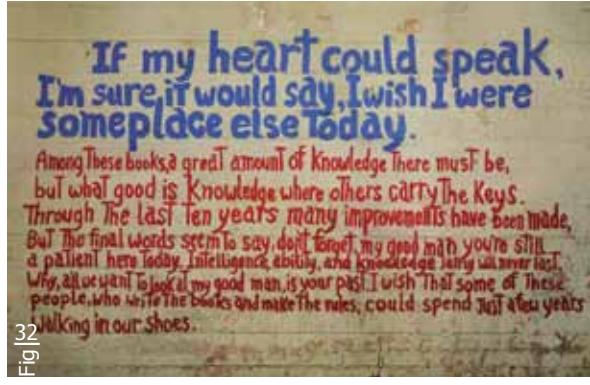 If my heart could speak,
I'm sure, it would say, I wish I were
someplace else Today.
Among These books, a great amount of Knowledge There must be,
but what good is Knowledge where others carry The Keys.
Through The last Ten years many improvements have been made,
But The final words seem To say, don't forget, my good man you're still
a patient here Today. Intelligence, ability, and knowledge will never last,
Why, all we want To look at my good man, is your past. I wish That some of These
people, who write The books and make The rules, could spend Just a few years
Walking in our Shoes.
Fig 32